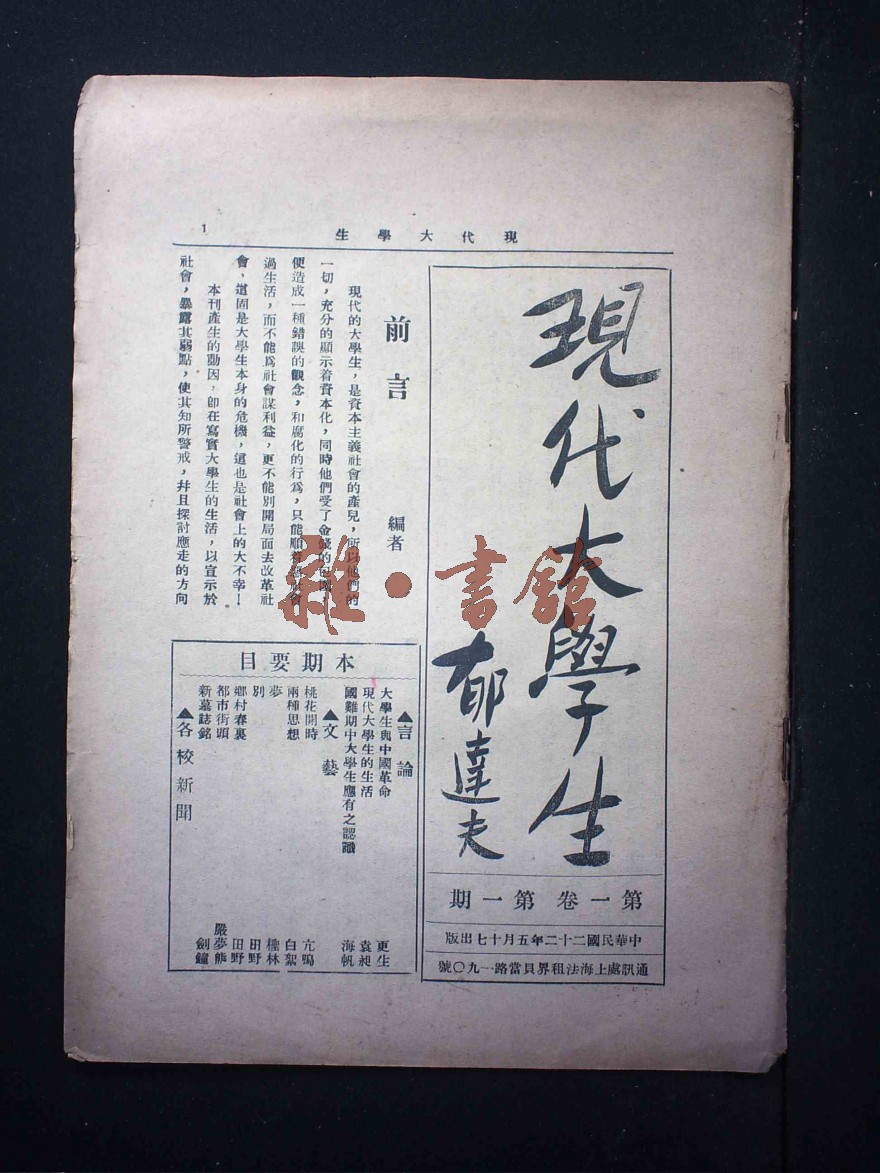 現代大學生
1
現代大學生
郁達夫
第一卷第一期
中華民國二十二年五月十七出版
通訊處上海法租界貝當路一九〇號
前言
編者
現代的大學生，是資本主義社會的產兒，所以他們的
一切，充分的顯示着資本化，同時他們受了金錢的
便造成一種錯誤的觀念，和腐化的行爲，只能順着
過生活，而不能爲社會謀利益，更不能別開局面去改革社
會，這固是大學生本身的危機，這也是社會上的大不幸！
本刊產生的動因，卽在寫實大學生的生活，以宣示於
社會，暴露其弱點，使其知所警戒，幷且探討應走的方向
本期要目
▲言論
大學生與中國革命 更生
現代大學生的生活 袁昶
國難期中大學生應有之認識 海帆
▲文藝
桃花開時
兩種思想 白絮
夢 林
別 田野
鄉村春裏 田野
都市街頭 嚴夢熊
新墓誌銘 劍鐘
▲各校新聞
雜·書館